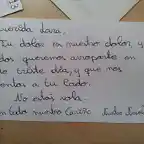 Querida Lara:
Tu dolor es nuestro dolor, y
todos queremos arroparte en
este triste día, y que nos
sientas a tu lado.
No estás sola.
Con todo nuestro Cariño